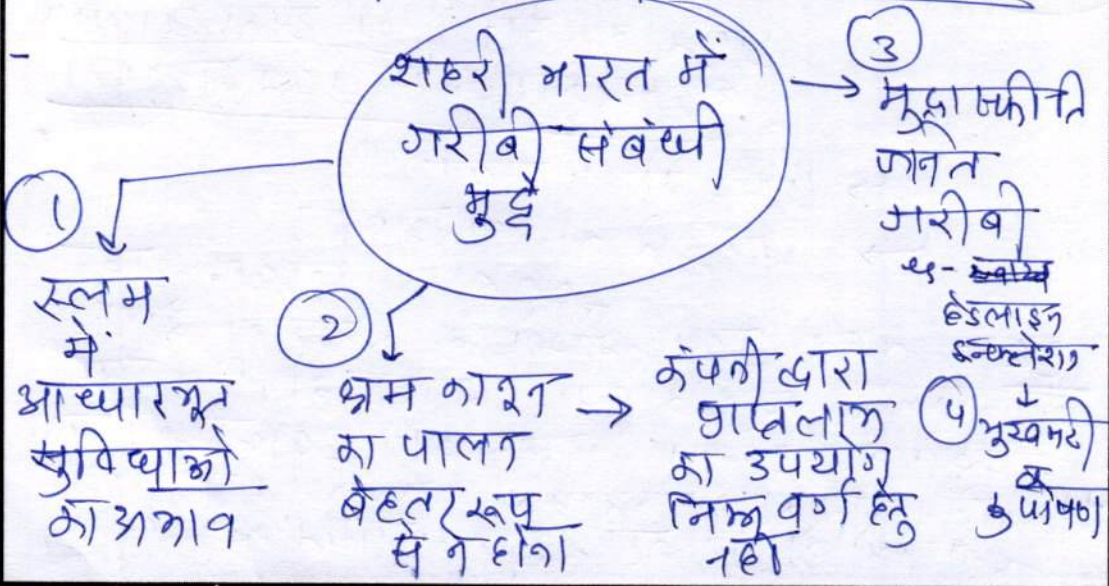 शहरी भारत में
गरीबी संबंधी
मुद्दे
1
स्लम
में
आधारभूत
सुविधाओं
का अभाव
2
श्रम कानून
का पालन
बेहतर रूप
से न होना
→ कंपनी द्वारा
प्राप्त लाभ
का उपयोग
निम्न वर्ग हेतु
नहीं
3
मुद्रास्फीति
जनित
गरीबी
हेडलाइन
इन्फ्लेशन
4
भुखमरी
व
कुपोषण